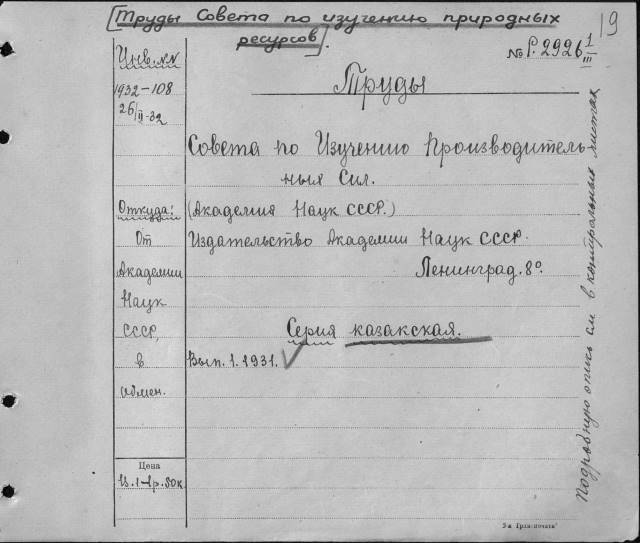 [Труды Совета по изучению природных
ресурсов].
19
№ Р. 2926 1/III
Инв. №№
1932-108
26/II-32
Труды
Совета по Изучению Производитель-
ных Сил.
Откуда:
(Академия Наук СССР.)
От
Издательство Академии Наук СССР.
Академии
Ленинград. 8°.
Наук
СССР,
Серия казакская.
в
Вып. 1. 1931.
обмен.
Цена
В. 1-1р. 50к
Подробную опись см в контрольных листах
5-я Гран-печата"